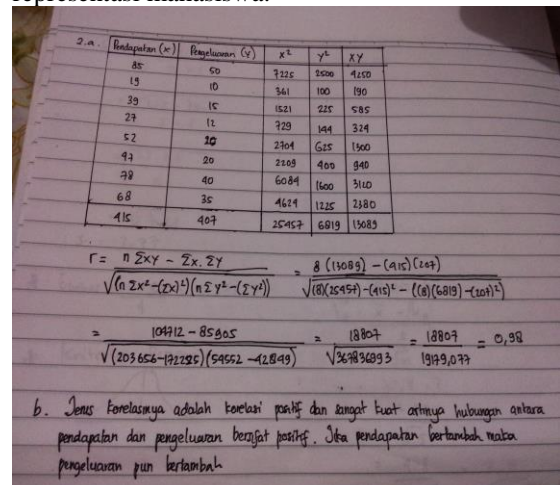 representasi mahasiswa.
2.a.
Pendapatan (x) Pengeluaran (Y) x² y² XY
85 50 7225 2500 4250
19 10 361 100 190
39 15 1521 225 585
27 12 729 144 324
52 625 1300
47 20 2209 400 940
78 40 6084 1600 3120
68 35 4624 1225 2380
415 407 25457 6819 13089
r = n Σxy - Σx. Σy / √(n Σx²-(Σx)²)(n Σy²-(Σy²)) = 8 (13089) - (415)(207) / √(8)(25457)-(415)² - ((8)(6819)-(207)²)
= 104712 - 85905 / √(203656-172225)(54552-42849) = 18807 / √367836993 = 18807 / 19179,077 = 0,98
b. Jenis korelasinya adalah korelasi positif dan sangat kuat artinya hubungan antara
pendapatan dan pengeluaran bersifat positif. Jika pendapatan bertambah maka
pengeluaran pun bertambah